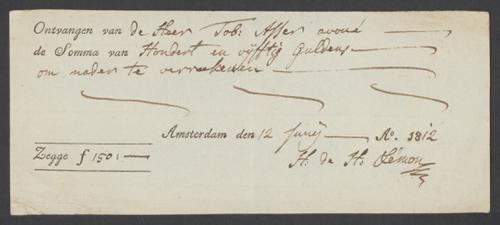 Ontvangen van de Heer Tob: Asser avoué
de Somma van Hondert en vijftig Guldens
om nader te verreekenen
Amsterdam den 12 Junij Ao. 1812
Zegge f 150:—
H: de H: Lémon